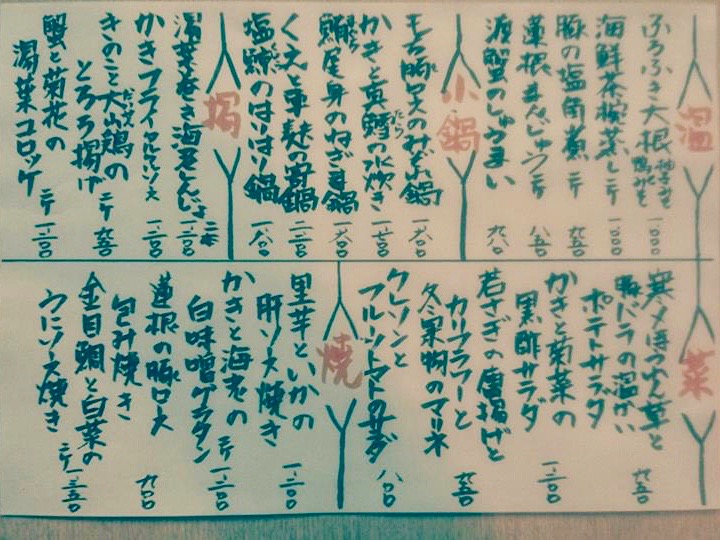 温
ふろふき大根 柚子みそ 鴨みそ 一、〇〇〇
海鮮茶椀蒸し 二ケ 一、〇〇〇
豚の塩角煮 二ケ 九五〇
蓮根まんじゅう 二ケ 八五〇
渡蟹のしゅうまい 九八〇
小鍋
もち豚ロースのみぞれ鍋 一、八〇〇
かきと真鱈の水炊き 一、七〇〇
鰤尾身のねぎま鍋 一、八〇〇
くえと車麸の鍋 二、二〇〇
塩鯨のはりはり鍋 一、八〇〇
揚
湯葉巻き海老しんじょ 二本 一、二〇〇
かきフライ タルタルソース 一、二〇〇
きのこと大山鶏の
とろろ揚げ 二ケ 九五〇
蟹と菊花の
湯葉コロッケ 二ケ 一、二〇〇
菜
寒〆ほうれん草と
豚バラの温かい
ポテトサラダ 九五〇
かきと菊菜の
黒酢サラダ 一、二〇〇
若さぎの唐揚げと
カリフラワーと
冬果物のマリネ 九五〇
クレソンと
フルーツトマトのサラダ 八〇〇
焼
里芋といかの
肝ソース焼き 一、二〇〇
かきと海老の
白味噌グラタン 二ケ 一、二〇〇
蓮根の豚ロース
包み焼き 九〇〇
金目鯛と白菜の
うにソース焼き 二ケ 一、三五〇